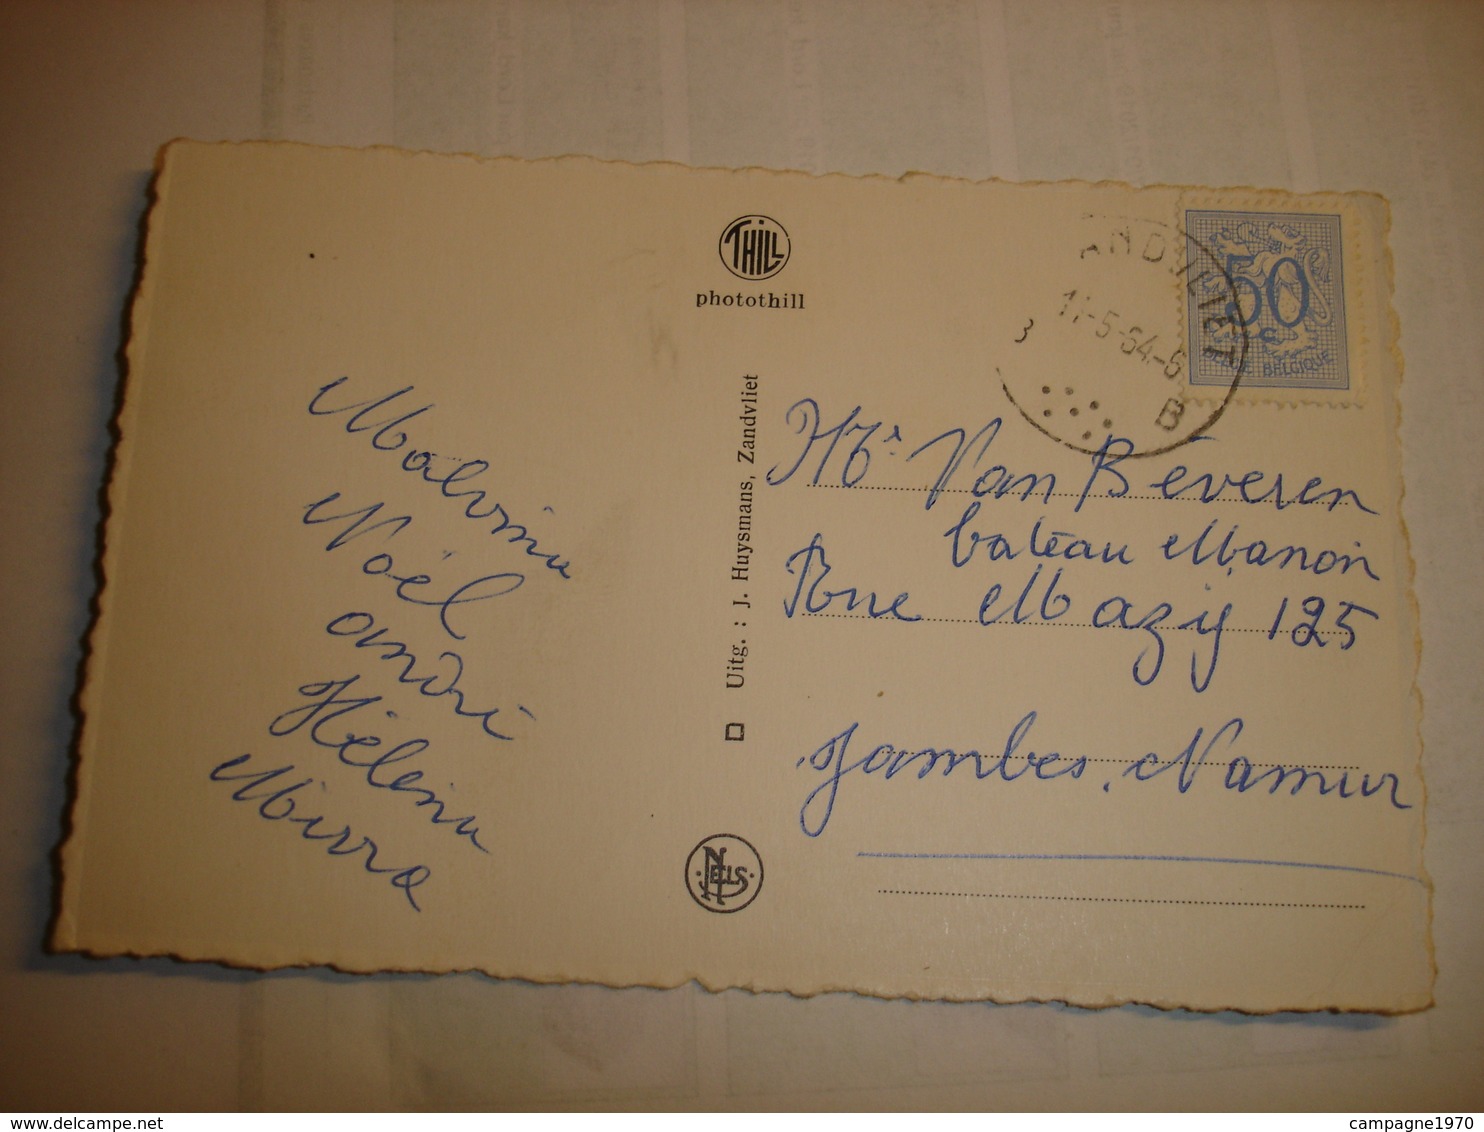 THILL
photothill
ANDVLIET
-5-64-6
B
50
C
BELGIQUE
Uitg. : J. Huysmans, Zandvliet
Malvina
Noël
andré
Hélena
Mirra
Mr Van Beveren
bateau Manon
Rue Mazy 125
Jambes. Namur
NELS
campagne1970